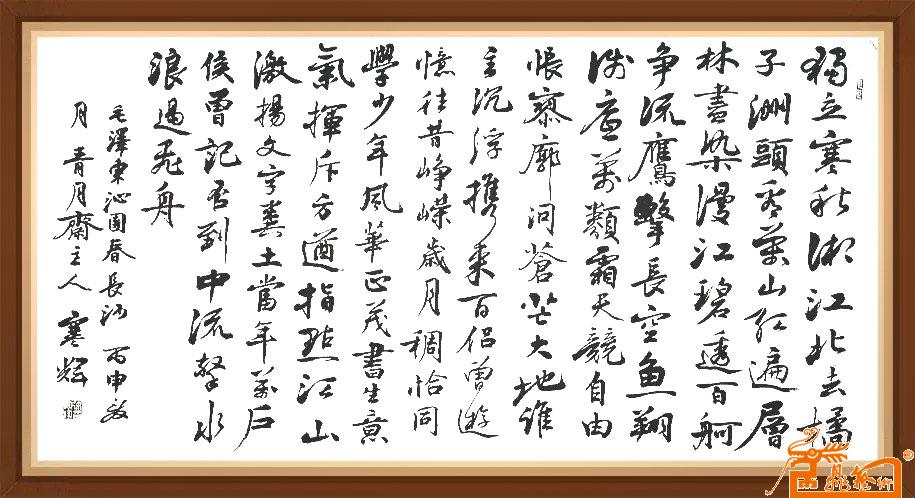 獨立寒秋湘江北去橘
子洲頭看萬山红遍層
林盡染漫江碧透百舸
争流鷹擊長空魚翔
浅底萬類霜天競自由
悵寥廓问蒼茫大地谁
主沉浮携来百侣曾遊
憶往昔崢嶸歲月稠恰同
學少年風華正茂書生意
氣揮斥方遒指點江山
激揚文字糞土當年萬户
侯曾記否到中流擊水
浪遏飛舟
毛澤東沁園春長沙 丙申
月青月齋主人 寒輝